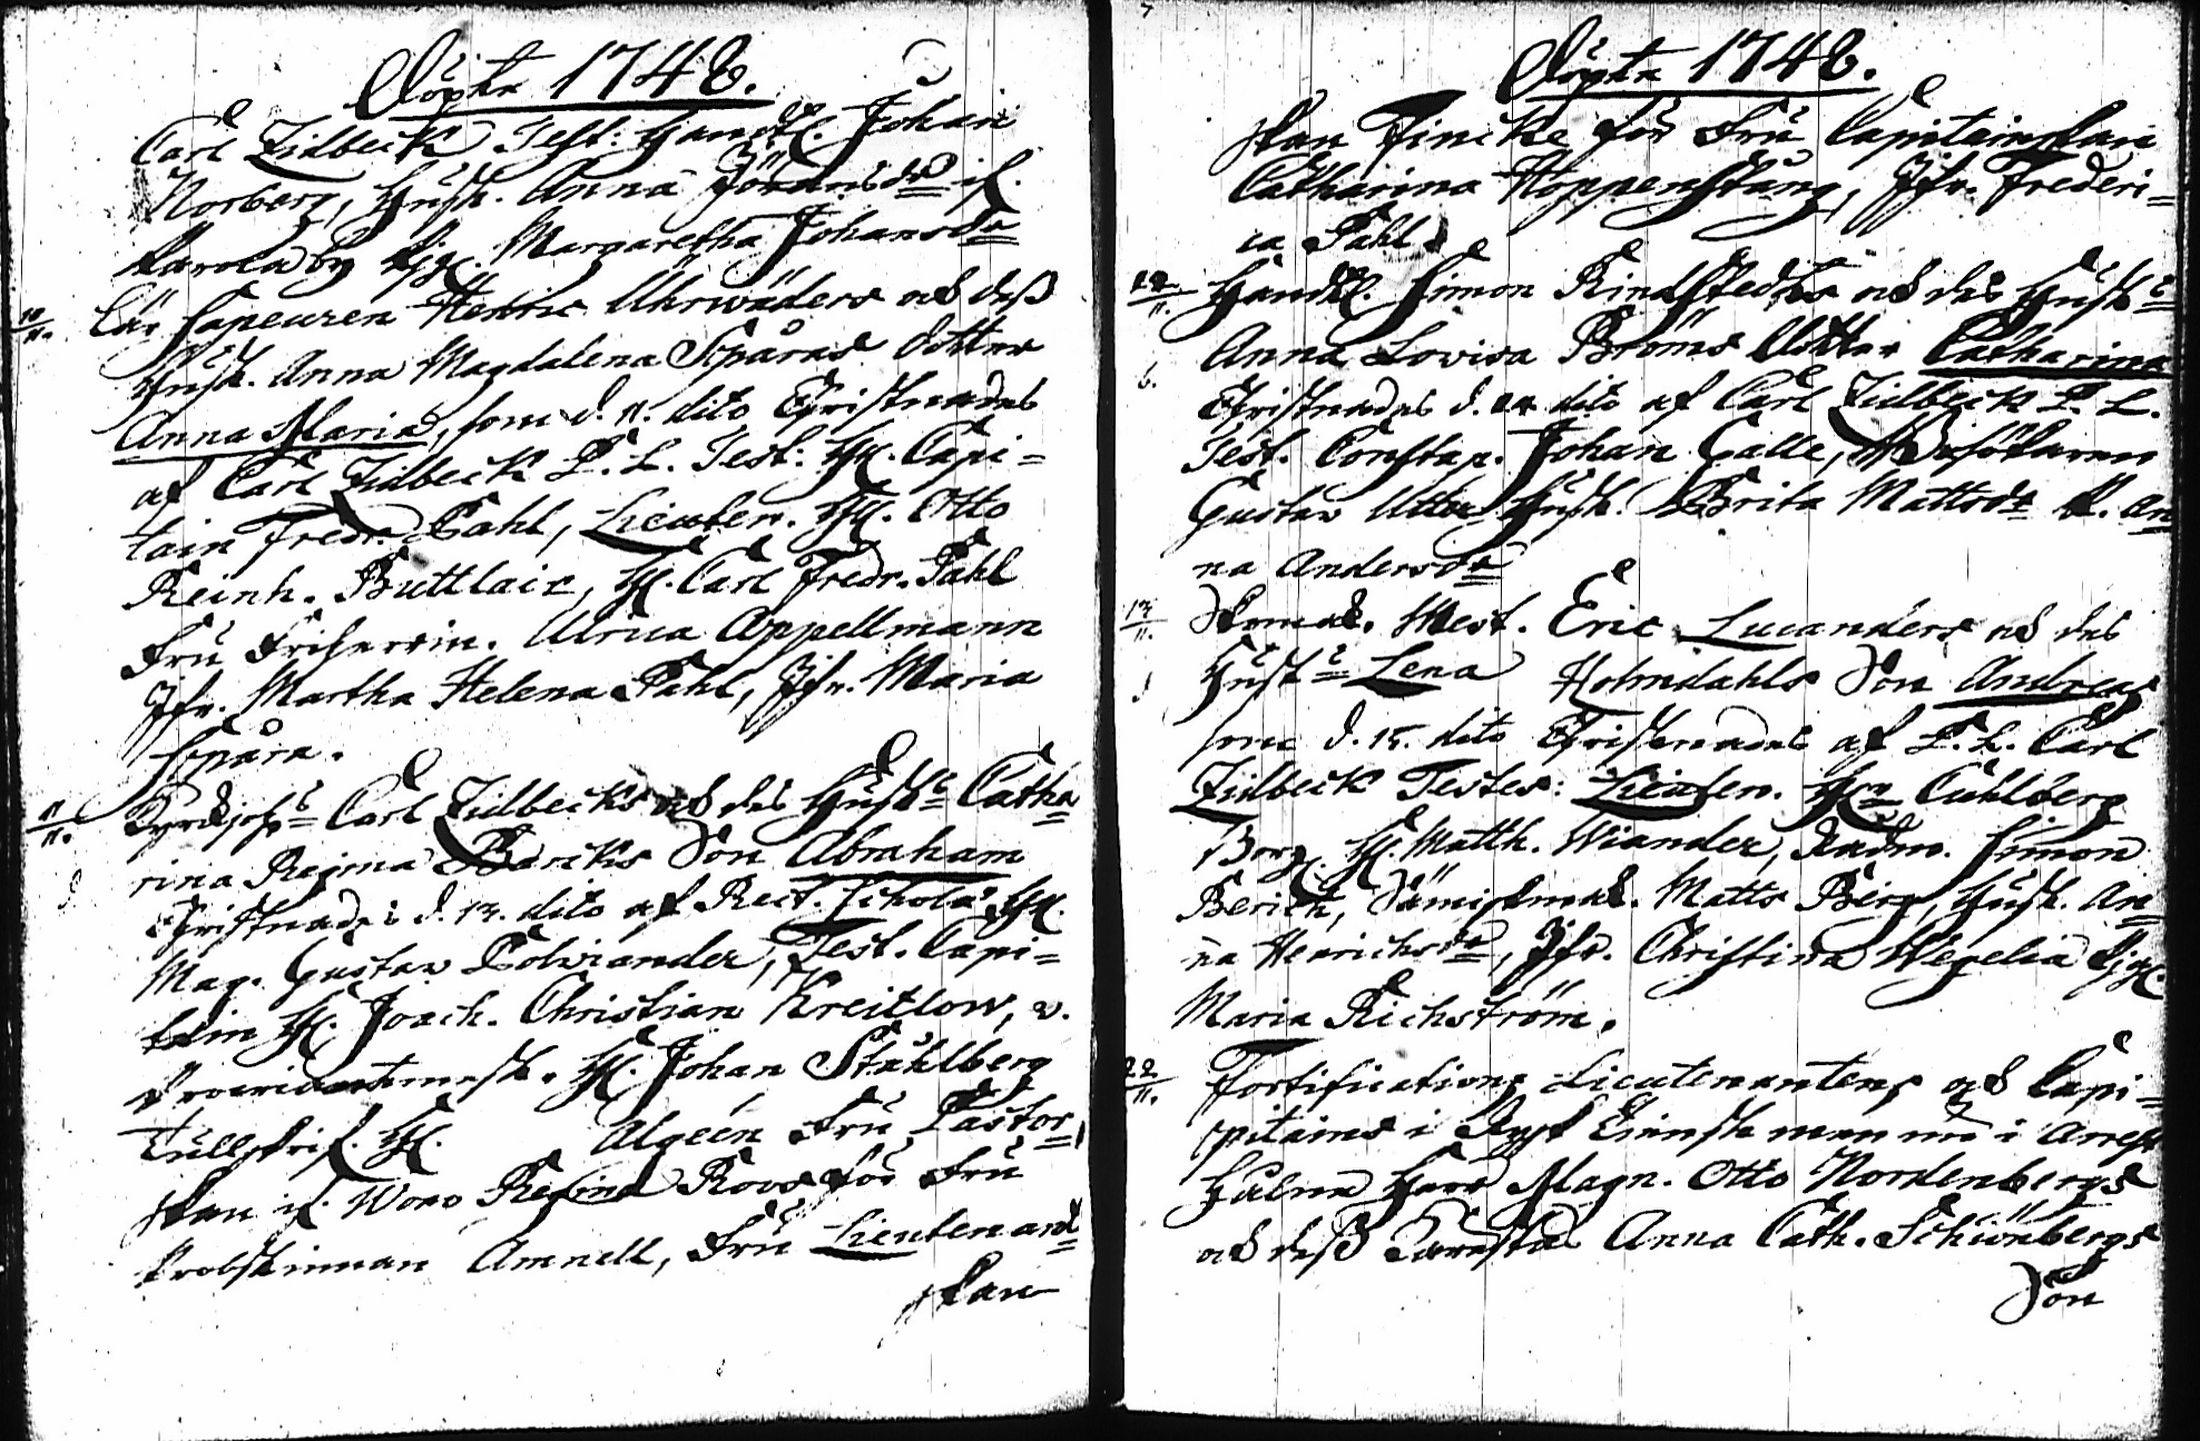 Döpte 1748.
Carl Zidbeck Test: Handl. Johan
Norberg, Hustr. Anna Jöransdr if.
Karola by Pig. Margaretha Johansdr
10/11. Lär Sapeuren Henric Uhrwäders och dess
Hustr. Anna Magdalena Spåras dotter
Anna Maria, som d. 11. dito Christnades
af Carl Zidbeck P. L. Test: H. Capi=
tain Fredr. Pahl, Lieuten. H. Otto
Reinh. Buttlair, H. Carl Fredr. Pahl
Fru Friherrin. Ulrica Appellmann
Jfr. Martha Helena Pahl, Jfr. Maria
Spåra.
11/11. Carl Zidbecks och des Hustrs Catha=
rina Regina Bericks Son Abraham
Christnades d. 13. dito af Rect. Schol. H.
Mag. Gustav Polviander, Test. Capi=
tain H. Joach. Christian Kreitlow, v.
Provindtmest. H. Johan Ståhlberg
Tullskrif. H. Algeen Fru Pastor=
skan if. Wono Regina Roos för Fru
Probstinnan Amnell, Fru Lieutenant=
skan
Döpte 1748.
skan Fincke för Fru Capitainskan
Catharina Hoppenstång, Jfr. Frederi=
ca Pahl.
12/11. Handl. Simon Rindstedts och des Hustrs
Anna Lovisa Broms dotter Catharina
6. Christnades d. 14 dito af Carl Zidbeck P. L.
Test. Constap. Johan Calle, Besökaren
Gustav Utter Hustr. Brita Mattsdr P. An=
na Andersdr
13/11. Skomak. Mest. Eric Lucanders och des
Hustrs Lena Holmdahls Son Andreas
som d. 15. dito Christnades af P. L. Carl
Zidbeck Testes: Lieuten. Hr Cuhlberg
Borg. H. Matth. Wiander, Rådm. Simon
Berick, Sämiskmak. Matts Berg, Hustr. An=
na Henrichsdr, Jfr. Christina Wegelia Pig.
Maria Richström.
22/11. Fortifications Lieutenantens och Capi=
pitains i Rysk tienst men nu i Arrest
Herr Magn. Otto Nordenbergs
och dess Anna Cath. Schönbergs
Son